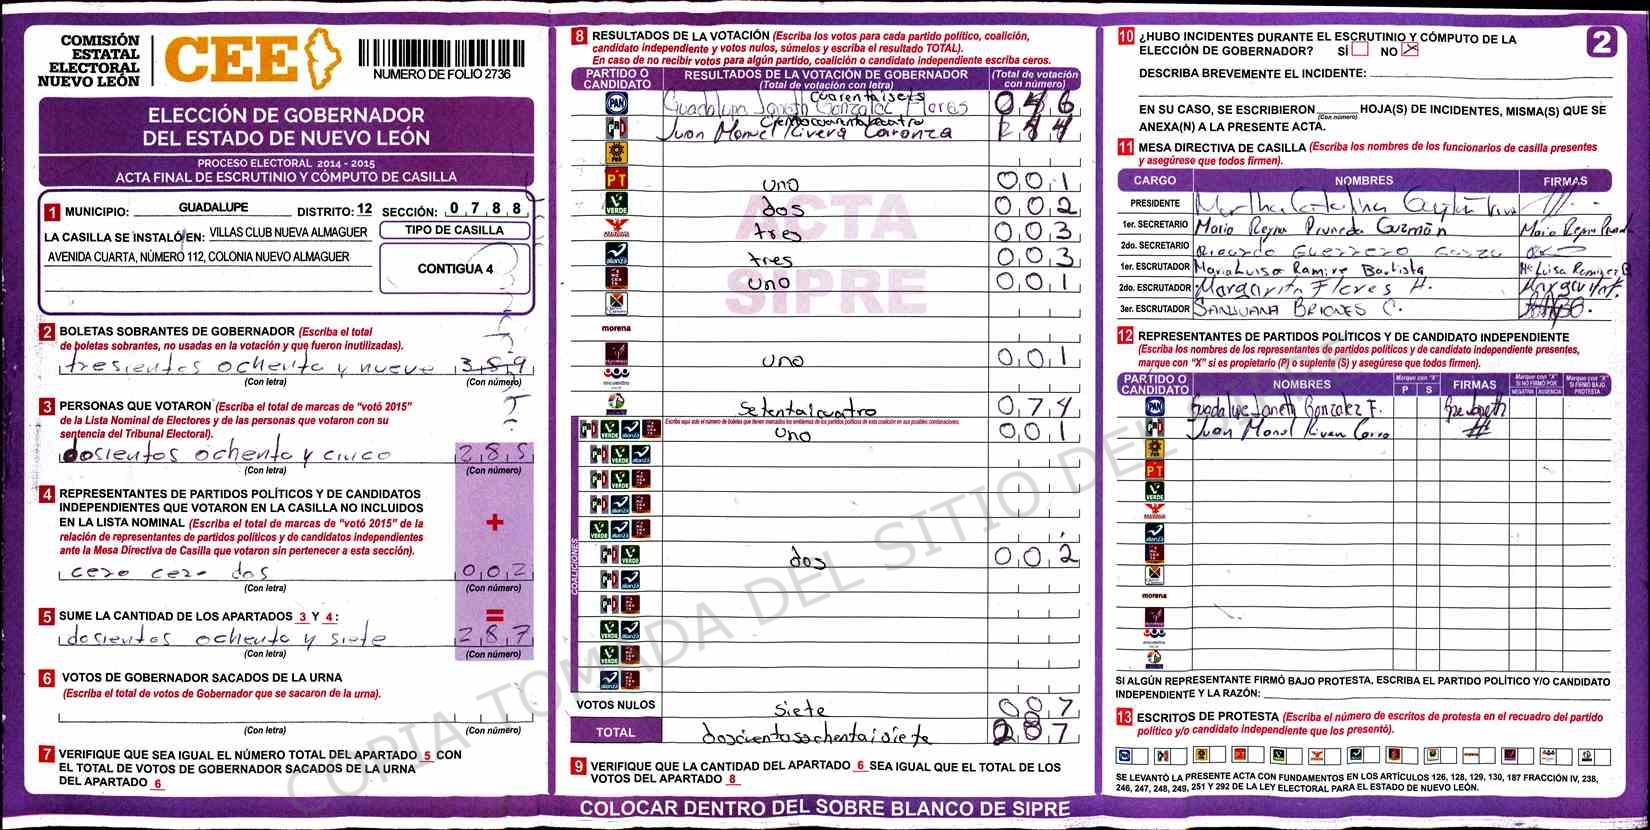 COMISIÓN
ESTATAL
ELECTORAL
NUEVO LEÓN
CEE
NUMERO DE FOLIO 2736
ELECCIÓN DE GOBERNADOR
DEL ESTADO DE NUEVO LEÓN
PROCESO ELECTORAL 2014 - 2015
ACTA FINAL DE ESCRUTINIO Y CÓMPUTO DE CASILLA
1 MUNICIPIO: GUADALUPE DISTRITO: 12 SECCIÓN: 0 7 8 8
LA CASILLA SE INSTALÓ EN: VILLAS CLUB NUEVA ALMAGUER
TIPO DE CASILLA
AVENIDA CUARTA, NÚMERO 112, COLONIA NUEVO ALMAGUER
CONTIGUA 4
2 BOLETAS SOBRANTES DE GOBERNADOR (Escriba el total
de boletas sobrantes, no usadas en la votación y que fueron inutilizadas).
tresientos ochenta y nueve 3 8 9
(Con letra) (Con número)
3 PERSONAS QUE VOTARON (Escriba el total de marcas de "votó 2015"
de la Lista Nominal de Electores y de las personas que votaron con su
sentencia del Tribunal Electoral).
dosientos ochenta y cinco 2 8 5
(Con letra) (Con número)
4 REPRESENTANTES DE PARTIDOS POLÍTICOS Y DE CANDIDATOS
INDEPENDIENTES QUE VOTARON EN LA CASILLA NO INCLUIDOS
EN LA LISTA NOMINAL (Escriba el total de marcas de "votó 2015" de la
relación de representantes de partidos políticos y de candidatos independientes
ante la Mesa Directiva de Casilla que votaron sin pertenecer a esta sección).
+
cero cero dos 0 0 2
(Con letra) (Con número)
5 SUME LA CANTIDAD DE LOS APARTADOS 3 Y 4: =
dosientos ochenta y siete 2 8 7
(Con letra) (Con número)
6 VOTOS DE GOBERNADOR SACADOS DE LA URNA
(Escriba el total de votos de Gobernador que se sacaron de la urna).
(Con letra) (Con número)
7 VERIFIQUE QUE SEA IGUAL EL NÚMERO TOTAL DEL APARTADO 5 CON
EL TOTAL DE VOTOS DE GOBERNADOR SACADOS DE LA URNA
DEL APARTADO 6
8 RESULTADOS DE LA VOTACIÓN (Escriba los votos para cada partido político, coalición,
candidato independiente y votos nulos, súmelos y escriba el resultado TOTAL).
En caso de no recibir votos para algún partido, coalición o candidato independiente escriba ceros.
PARTIDO O CANDIDATO
RESULTADOS DE LA VOTACIÓN DE GOBERNADOR
(Total de votación con letra)
(Total de votación con número)
PAN cuarentaiseis 0 4 6
Guadalupe Janeth Gonzalez Flores
PRI cientocuarentaicuatro 1 4 4
Juan Manuel Rivera Carranza
PRD
PT uno 0 0 1
VERDE dos 0 0 2
tres 0 0 3
alianza tres 0 0 3
uno 0 0 1
morena
uno 0 0 1
encuentro
setentaicuatro 0 7 4
Escriba aquí solo el número de boletas que tienen marcados los emblemas de los partidos políticos de esta coalición en sus posibles combinaciones.
uno 0 0 1
COALICIONES
dos 0 0 2
VOTOS NULOS siete 0 0 7
TOTAL doscientosochentaisiete 2 8 7
9 VERIFIQUE QUE LA CANTIDAD DEL APARTADO 6 SEA IGUAL QUE EL TOTAL DE LOS
VOTOS DEL APARTADO 8
ACTA
SIPRE
COPIA TOMADA DEL SITIO DEL SIPRE
COLOCAR DENTRO DEL SOBRE BLANCO DE SIPRE
2
10 ¿HUBO INCIDENTES DURANTE EL ESCRUTINIO Y CÓMPUTO DE LA
ELECCIÓN DE GOBERNADOR? SÍ NO X
DESCRIBA BREVEMENTE EL INCIDENTE:
EN SU CASO, SE ESCRIBIERON HOJA(S) DE INCIDENTES, MISMA(S) QUE SE
(Con número)
ANEXA(N) A LA PRESENTE ACTA.
11 MESA DIRECTIVA DE CASILLA (Escriba los nombres de los funcionarios de casilla presentes
y asegúrese que todos firmen).
CARGO NOMBRES FIRMAS
PRESIDENTE Martha Catalina
1er. SECRETARIO Maria Reyna Pruneda Guzmán
2do. SECRETARIO Ricardo Guerrero Garza
1er. ESCRUTADOR Maria Luisa Ramire Bautista Ma Luisa Ramirez B
2do. ESCRUTADOR Margarita Flores H. Margarita
3er. ESCRUTADOR SANJUANA BRIONES C.
12 REPRESENTANTES DE PARTIDOS POLÍTICOS Y DE CANDIDATO INDEPENDIENTE
(Escriba los nombres de los representantes de partidos políticos y de candidato independiente presentes,
marque con "X" si es propietario (P) o suplente (S) y asegúrese que todos firmen).
PARTIDO O CANDIDATO NOMBRES Marque con "X" P S FIRMAS Marque con "X" SI NO FIRMÓ POR NEGATIVA AUSENCIA Marque con "X" SI FIRMÓ BAJO PROTESTA
PAN Guadalupe Janeth Gonzalez F.
PRI Juan Manuel Rivera Carra
PRD
PT
VERDE
alianza
morena
encuentro
SI ALGÚN REPRESENTANTE FIRMÓ BAJO PROTESTA, ESCRIBA EL PARTIDO POLÍTICO Y/O CANDIDATO
INDEPENDIENTE Y LA RAZÓN:
13 ESCRITOS DE PROTESTA (Escriba el número de escritos de protesta en el recuadro del partido
político y/o candidato independiente que los presentó).
SE LEVANTÓ LA PRESENTE ACTA CON FUNDAMENTOS EN LOS ARTÍCULOS 126, 128, 129, 130, 187 FRACCIÓN IV, 238,
246, 247, 248, 249, 251 Y 292 DE LA LEY ELECTORAL PARA EL ESTADO DE NUEVO LEÓN.